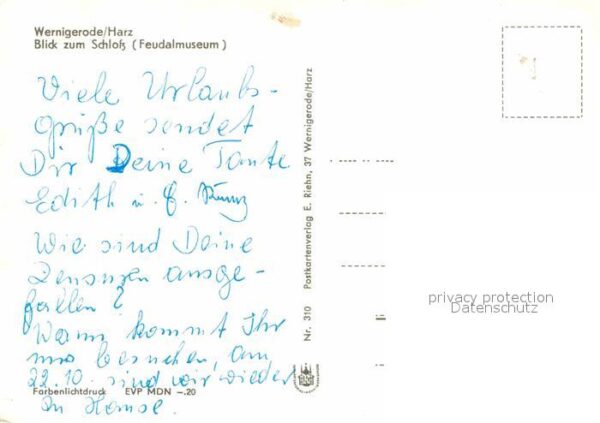 Wernigerode/Harz
Blick zum Schloß (Feudalmuseum)
Viele Urlaubs-
grüße sendet
Dir Deine Tante
Edith u.
Wie sind Deine
Zensuren ausge-
fallen?
Wann kommt Ihr
uns besuchen, am
22.10. sind wir wieder
zu Hause.
Farbenlichtdruck EVP MDN -.20
Nr. 310 Postkartenverlag E. Riehn, 37 Wernigerode/Harz
privacy protection
Datenschutz